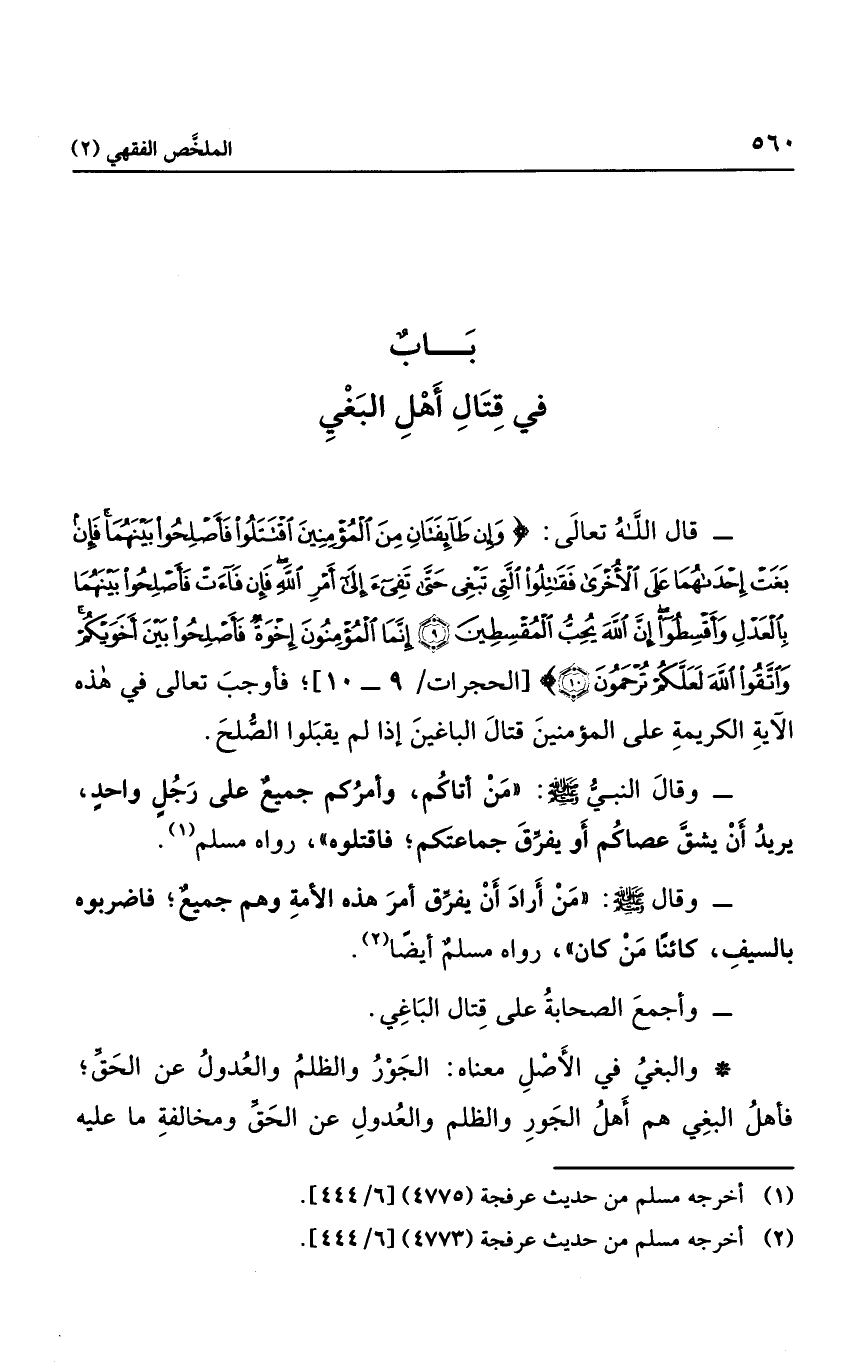 ٥٦٠
الملخَّص الفقهي (٢)
بَـــابٌ
في قِتَالِ أَهْلِ البَغْيِ
ــ قال اللَّـٰهُ تعالَى: ﴿ وَإِن طَآئِفَتَانِ مِنَ ٱلْمُؤْمِنِينَ ٱقْتَتَلُوا۟ فَأَصْلِحُوا۟ بَيْنَهُمَا ۖ فَإِنۢ
بَغَتْ إِحْدَىٰهُمَا عَلَى ٱلْأُخْرَىٰ فَقَٰتِلُوا۟ ٱلَّتِى تَبْغِى حَتَّىٰ تَفِىٓءَ إِلَىٰٓ أَمْرِ ٱللَّهِ ۚ فَإِن فَآءَتْ فَأَصْلِحُوا۟ بَيْنَهُمَا
بِٱلْعَدْلِ وَأَقْسِطُوٓا۟ ۖ إِنَّ ٱللَّهَ يُحِبُّ ٱلْمُقْسِطِينَ ۝٩ إِنَّمَا ٱلْمُؤْمِنُونَ إِخْوَةٌ فَأَصْلِحُوا۟ بَيْنَ أَخَوَيْكُمْ ۚ
وَٱتَّقُوا۟ ٱللَّهَ لَعَلَّكُمْ تُرْحَمُونَ ۝١٠﴾ [الحجرات/ ٩ ــ ١٠]؛ فأوجبَ تعالى في هٰذه
الآيةِ الكريمةِ على المؤمنينَ قتالَ الباغينَ إذا لم يقبَلوا الصُّلحَ.
ــ وقالَ النبـيُّ ﷺ: «مَنْ أتاكُم، وأمرُكم جميعٌ على رَجُلٍ واحدٍ،
يريدُ أَنْ يشقَّ عصاكُم أَو يفرِّقَ جماعتكم؛ فاقتلوه»، رواه مسلم(١).
ــ وقال ﷺ: «مَنْ أَرادَ أَنْ يفرِّق أمرَ هذه الأمةِ وهم جميعٌ؛ فاضربوه
بالسيفِ، كائنًا مَنْ كان»، رواه مسلمٌ أيضًا(٢).
ــ وأجمعَ الصحابةُ على قِتال البَاغِي.
* والبغيُ في الأَصْلِ معناه: الجَوْرُ والظلمُ والعُدولُ عن الحَقِّ؛
فأهلُ البغِي هم أَهلُ الجَورِ والظلم والعُدولِ عن الحَقِّ ومخالفةِ ما عليه
(١) أخرجه مسلم من حديث عرفجة (٤٧٧٥) [٦/ ٤٤٤].
(٢) أخرجه مسلم من حديث عرفجة (٤٧٧٣) [٦/ ٤٤٤].